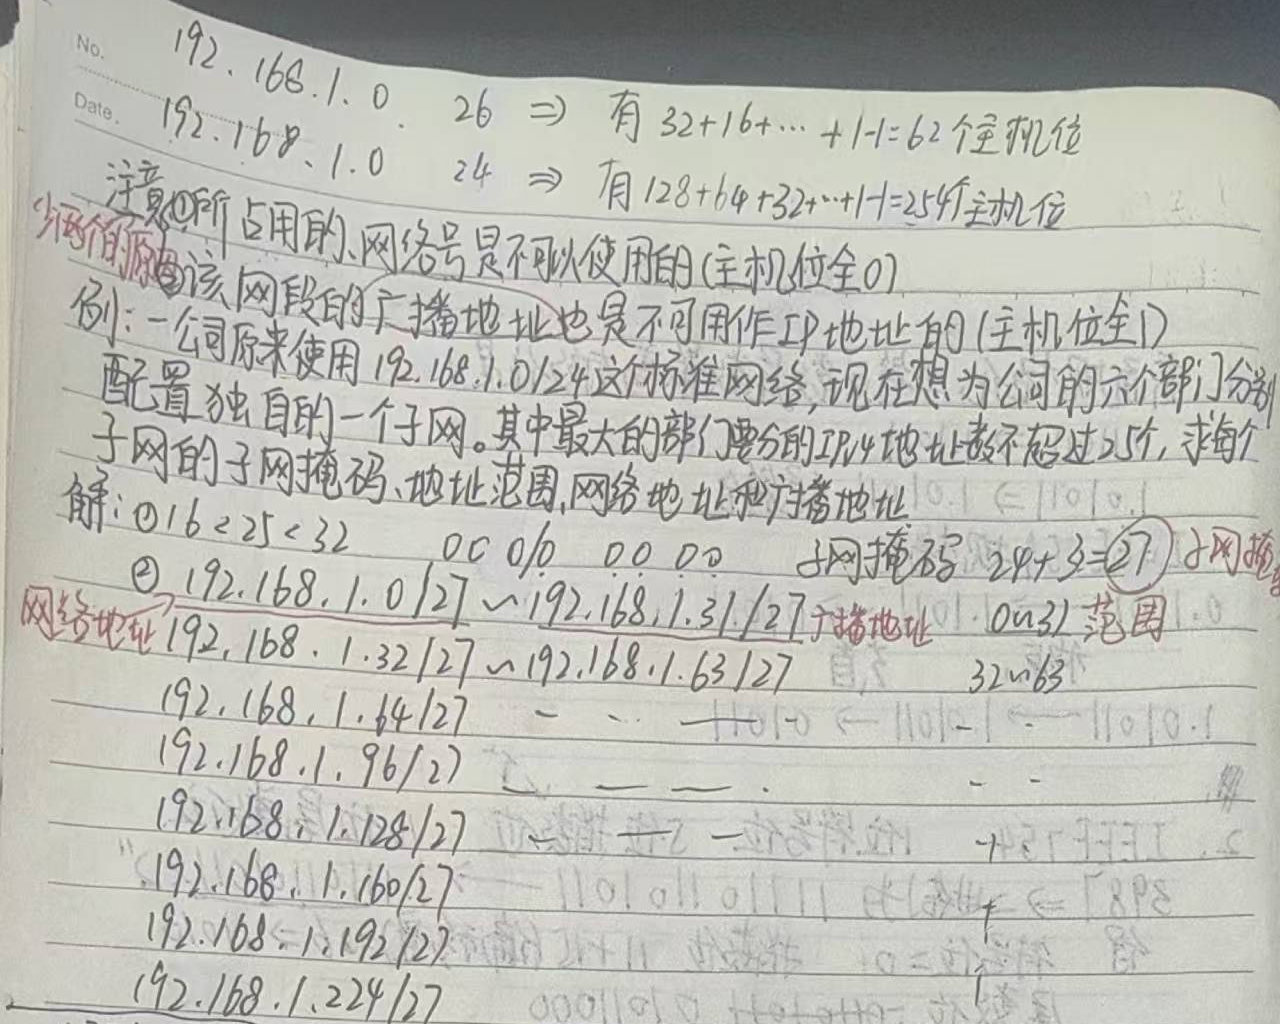 No.
192.168.1.0 26 ⇒ 有 32+16+… +1-1=62个主机位
Date.
192.168.1.0 24 ⇒ 有128+64+32+…+1-1=254个主机位
注意①所占用的、网络号是不可以使用的(主机位全0)
少两个的原因
②该网段的广播地址也是不可用作IP地址的(主机位全1)
例:一公司原来使用192.168.1.0/24这个标准网络,现在想为公司的六个部门分别
配置独自的一个子网。其中最大的部门要分的IPv4地址数不超过25个,求每个
子网的子网掩码、地址范围,网络地址和广播地址
解:①16<25<32 000/0 0000 子网掩码 24+3=27 子网掩
②192.168.1.0/27~192.168.1.31/27 广播地址 0~31 范围
网络地址 192.168.1.32/27~192.168.1.63/27 32~63
192.168.1.64/27
192.168.1.96/27
192.168.1.128/27
192.168.1.160/27
192.168.1.192/27
192.168.1.224/27